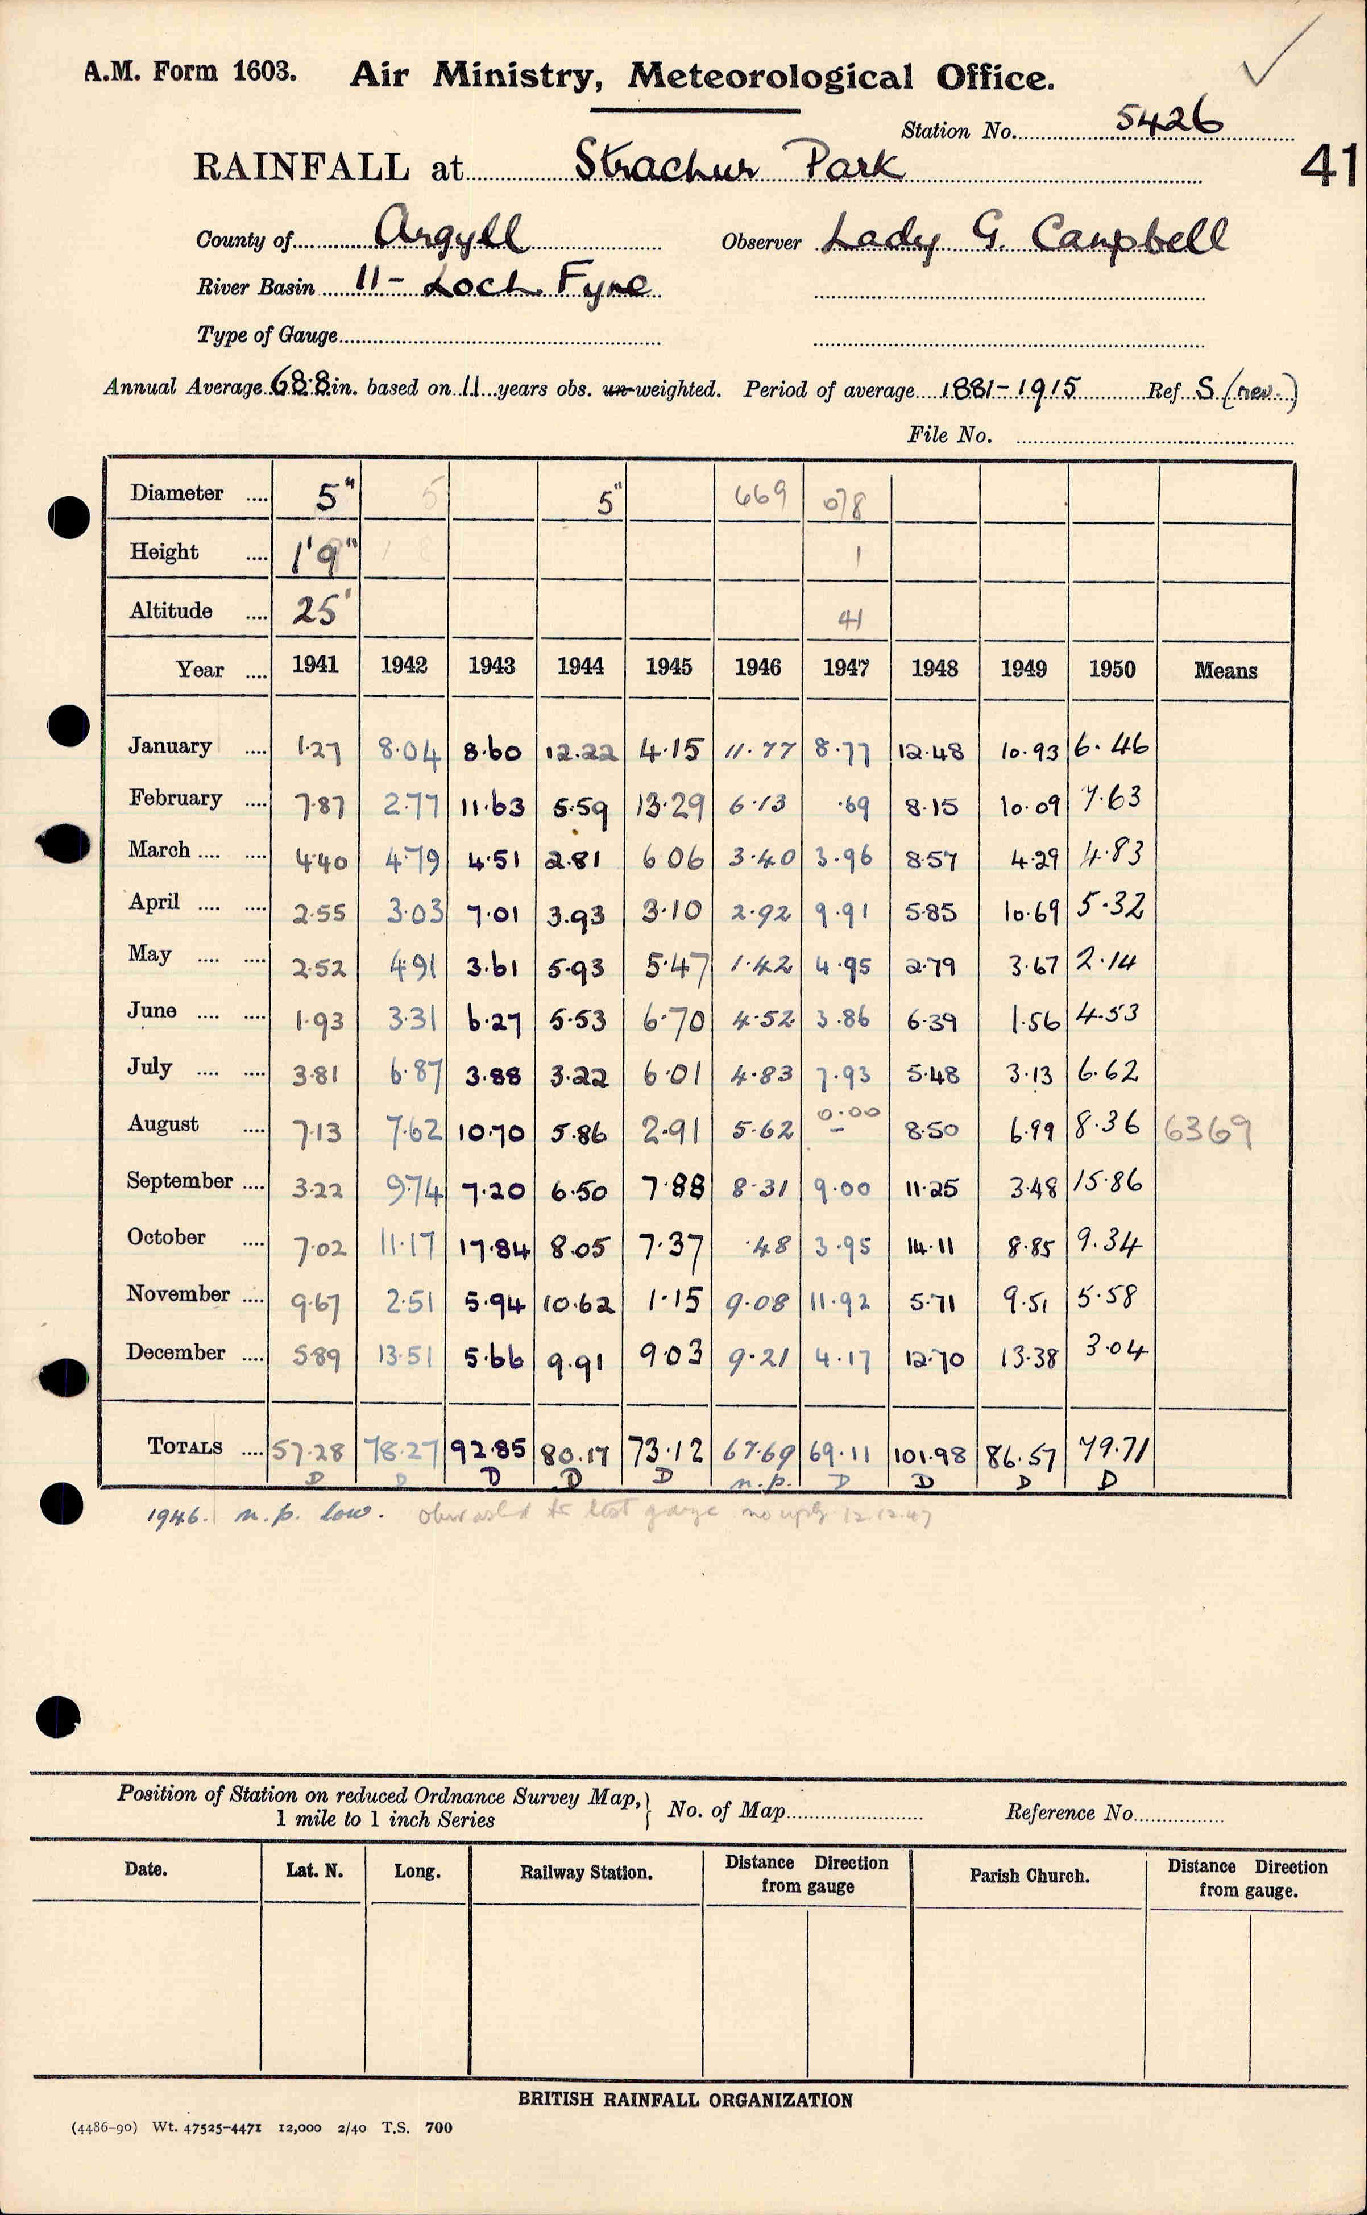 A.M. Form 1603. Air Ministry, Meteorological Office.
Station No. 5426
41
RAINFALL at Strachur Park
County of Argyll Observer Lady G. Campbell
River Basin 11 - Loch Fyne
Type of Gauge
Annual Average 68.8 in. based on 11 years obs. un-weighted. Period of average 1881-1915 Ref S (rev.)
File No.
Diameter .... 5" 5 5" 669 078
Height .... 1'9" 1 8 1
Altitude .... 25' 41
Year .... 1941 1942 1943 1944 1945 1946 1947 1948 1949 1950 Means
January .... 1.27 8.04 8.60 12.22 4.15 11.77 8.77 12.48 10.93 6.46
February .... 7.87 2.77 11.63 5.59 13.29 6.13 .69 8.15 10.09 7.63
March .... .... 4.40 4.79 4.51 2.81 6.06 3.40 3.96 8.57 4.29 4.83
April .... .... 2.55 3.03 7.01 3.93 3.10 2.92 9.91 5.85 10.69 5.32
May .... .... 2.52 4.91 3.61 5.93 5.47 1.42 4.95 2.79 3.67 2.14
June .... .... 1.93 3.31 6.27 5.53 6.70 4.52 3.86 6.39 1.56 4.53
July .... .... 3.81 6.87 3.88 3.22 6.01 4.83 7.93 5.48 3.13 6.62
August .... 7.13 7.62 10.70 5.86 2.91 5.62 0.00 – 8.50 6.99 8.36 6369
September .... 3.22 9.74 7.20 6.50 7.88 8.31 9.00 11.25 3.48 15.86
October .... 7.02 11.17 17.84 8.05 7.37 .48 3.95 14.11 8.85 9.34
November .... 9.67 2.51 5.94 10.62 1.15 9.08 11.92 5.71 9.51 5.58
December .... 5.89 13.51 5.66 9.91 9.03 9.21 4.17 12.70 13.38 3.04
TOTALS .... 57.28 78.27 92.85 80.17 73.12 67.69 69.11 101.98 86.57 79.71
D D D D D n.p. D D D D
1946. n.p. low. test gauge no reply 12.12.47
Position of Station on reduced Ordnance Survey Map,} No. of Map Reference No.
1 mile to 1 inch Series
Date. Lat. N. Long. Railway Station. Distance Direction from gauge Parish Church. Distance Direction from gauge.
BRITISH RAINFALL ORGANIZATION
(4486-90) Wt. 47525-4471 12,000 2/40 T.S. 700